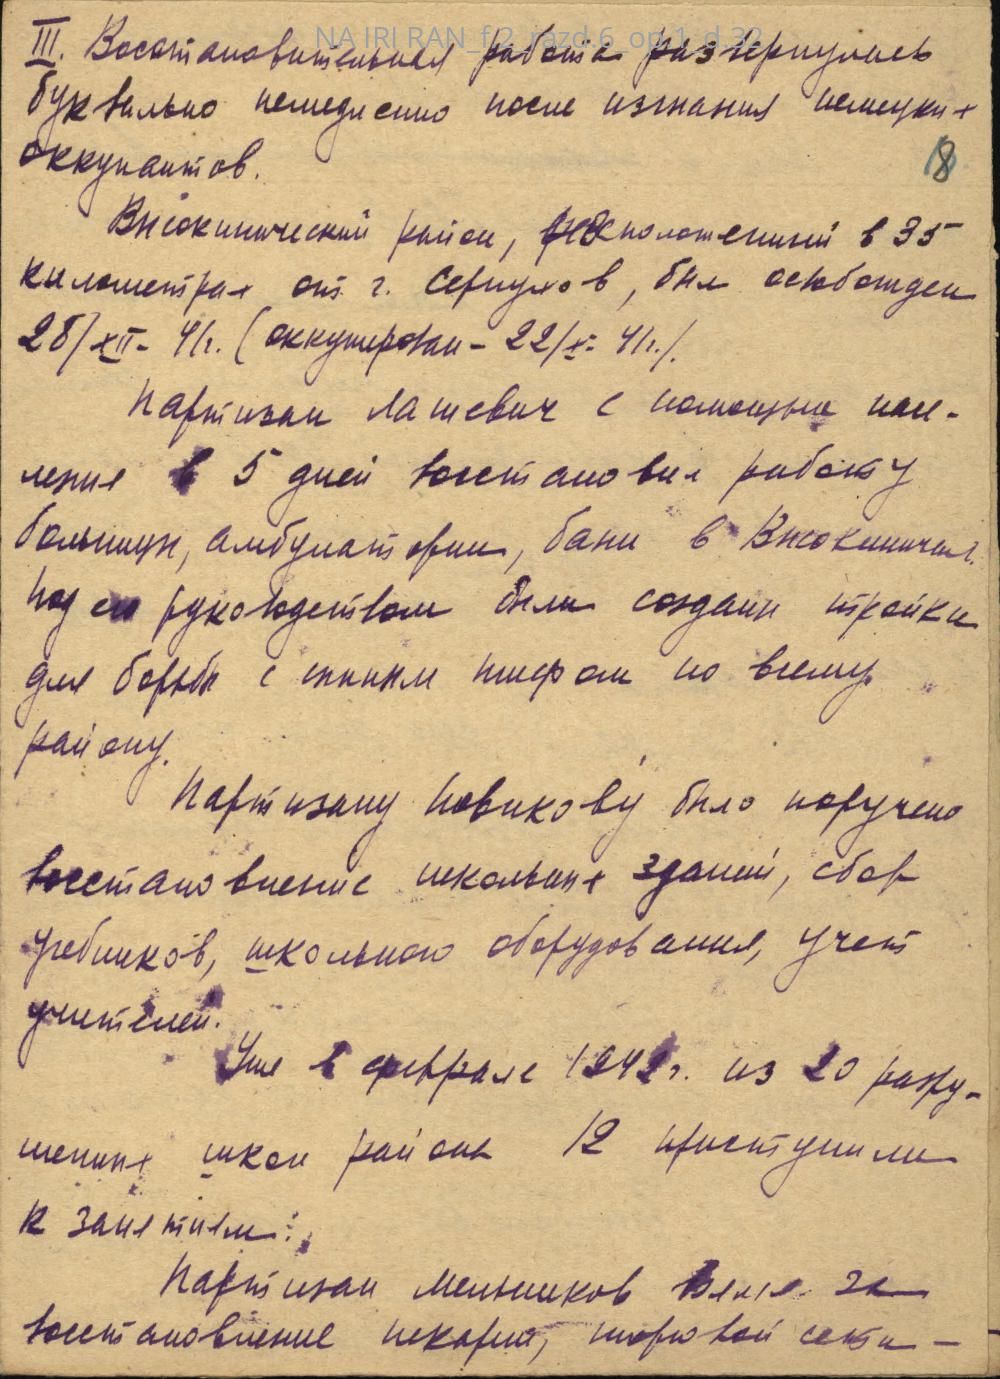 NA IRI RAN_f.2_razd.6_op.1_d.32
III. Восстановительная работа развернулась
буквально немедленно после изгнания немецких
оккупантов.
18
Высокиничский район, расположенный в 35
километрах от г. Серпухов, был освобожден
28/XII- 41г. (оккупирован - 22/X- 41г.).
Партизан Лашевич с помощью насе-
ления в 5 дней восстановил работу
больницы, амбулатории, бани в Высокиничах.
Под его руководством были созданы тройки
для борьбы с сыпным тифом по всему
району.
Партизану Новикову было поручено
восстановление школьных зданий, сбор
учебников, школьного оборудования, учет
учителей.
Уже в феврале 1942г. из 20 разру-
шенных школ района 12 приступили
к занятиям.
Партизан Мельников взялся за
восстановление пекарни, торговой сети -